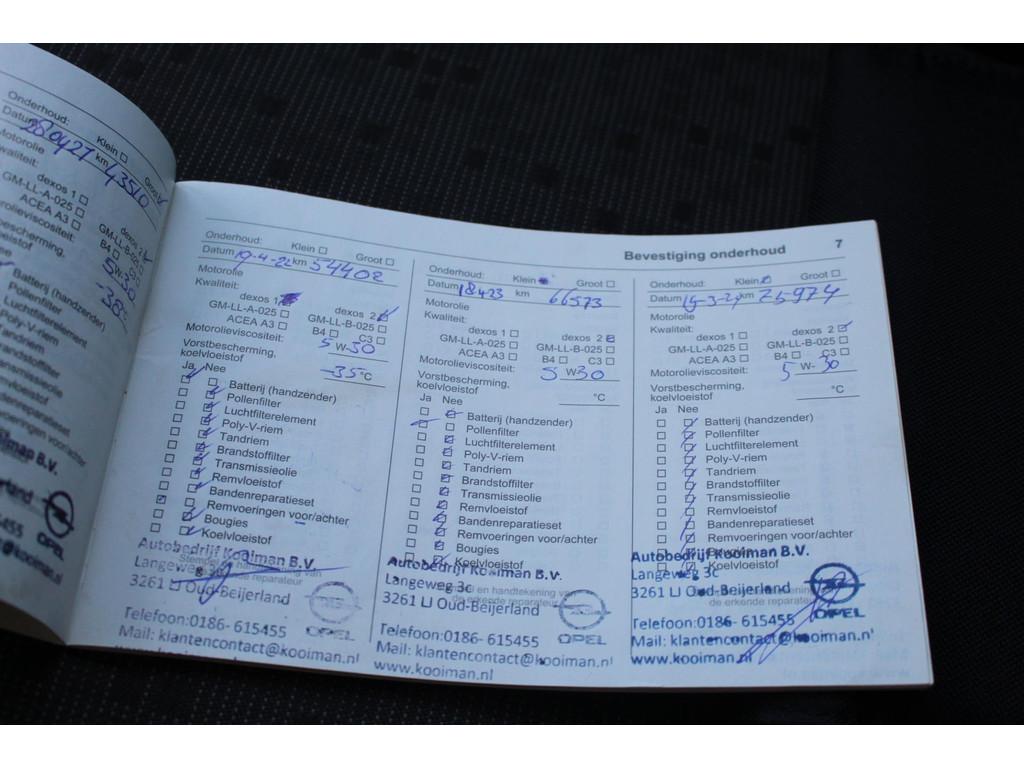 Onderhoud: Klein ☐ Groot
Datum 280421 km 43510
Motorolie
Kwaliteit:
dexos 1 ☐ dexos 2
GM-LL-A-025 ☐ GM-LL-B-025 ☐
ACEA A3 ☐ B4 ☐
5 W-30
-38°C
Batterij (handzender)
Pollenfilter
Luchtfilterelement
Poly-V-riem
Tandriem
OPEL
Bevestiging onderhoud 7
Onderhoud: Klein ☐ Groot ☐
Datum 19-4-22 km 54402
Motorolie
Kwaliteit:
dexos 1 dexos 2
GM-LL-A-025 ☐ GM-LL-B-025 ☐
ACEA A3 ☐ B4 ☐ C3 ☐
Motorolieviscositeit: 5 W-30
Vorstbescherming,
koelvloeistof -35°C
Ja Nee
Batterij (handzender)
Pollenfilter
Luchtfilterelement
Poly-V-riem
Tandriem
Brandstoffilter
Transmissieolie
Remvloeistof
Bandenreparatieset
Remvoeringen voor/achter
Bougies
Koelvloeistof
Autobedrijf Kooiman B.V.
Langeweg 3c
3261 LJ Oud-Beijerland
OPEL
Telefoon:0186- 615455
Mail: klantencontact@kooiman.nl
Onderhoud: Klein Groot ☐
Datum 18423 km 66573
Motorolie
Kwaliteit:
dexos 1 ☐ dexos 2
GM-LL-A-025 ☐ GM-LL-B-025 ☐
ACEA A3 ☐ B4 ☐ C3 ☐
Motorolieviscositeit: 5 W30
Vorstbescherming,
koelvloeistof °C
Ja Nee
Batterij (handzender)
Pollenfilter
Luchtfilterelement
Poly-V-riem
Tandriem
Brandstoffilter
Transmissieolie
Remvloeistof
Bandenreparatieset
Remvoeringen voor/achter
Bougies
Koelvloeistof
Autobedrijf Kooiman B.V.
Langeweg 3c
3261 LJ Oud-Beijerland
OPEL
Telefoon:0186- 615455
Mail: klantencontact@kooiman.nl
www.kooiman.nl
Onderhoud: Klein Groot ☐
Datum 19-3-24 km 75974
Motorolie
Kwaliteit:
dexos 1 ☐ dexos 2
GM-LL-A-025 ☐ GM-LL-B-025 ☐
ACEA A3 ☐ B4 ☐ C3 ☐
Motorolieviscositeit: 5 W-30
Vorstbescherming,
koelvloeistof °C
Ja Nee
Batterij (handzender)
Pollenfilter
Luchtfilterelement
Poly-V-riem
Tandriem
Brandstoffilter
Transmissieolie
Remvloeistof
Bandenreparatieset
Remvoeringen voor/achter
Bougies
Koelvloeistof
Autobedrijf Kooiman B.V.
Langeweg 3c
3261 LJ Oud-Beijerland
de erkende reparateur
OPEL
Telefoon:0186- 615455
Mail: klantencontact@kooiman.nl
www.kooiman.nl